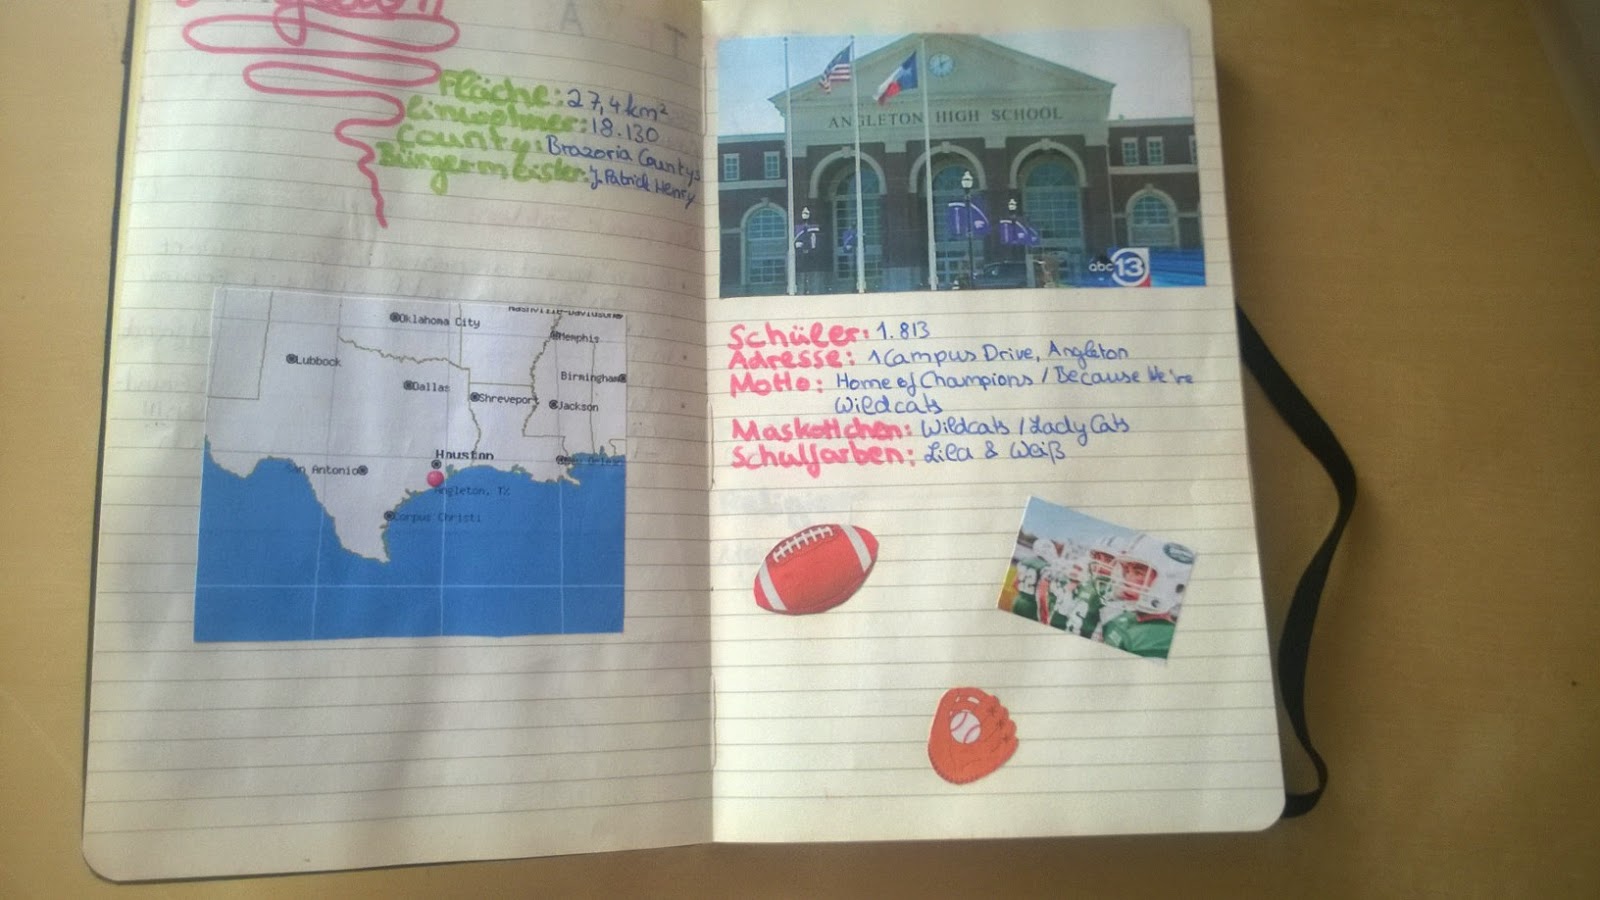 Fläche: 27,4 km²
Einwohner: 18.130
County: Brazoria Countys
Bürgermeister: J. Patrick Henry
Oklahoma City
Memphis
Lubbock
Dallas
Birmingham
Shreveport
Jackson
Houston
San Antonio
Angleton, TX
Corpus Christi
ANGLETON HIGH SCHOOL
abc 13
Schüler: 1.813
Adresse: 1 Campus Drive, Angleton
Motto: Home of Champions / Because We're
Wildcats
Maskottchen: Wildcats / Lady Cats
Schulfarben: Lila & Weiß